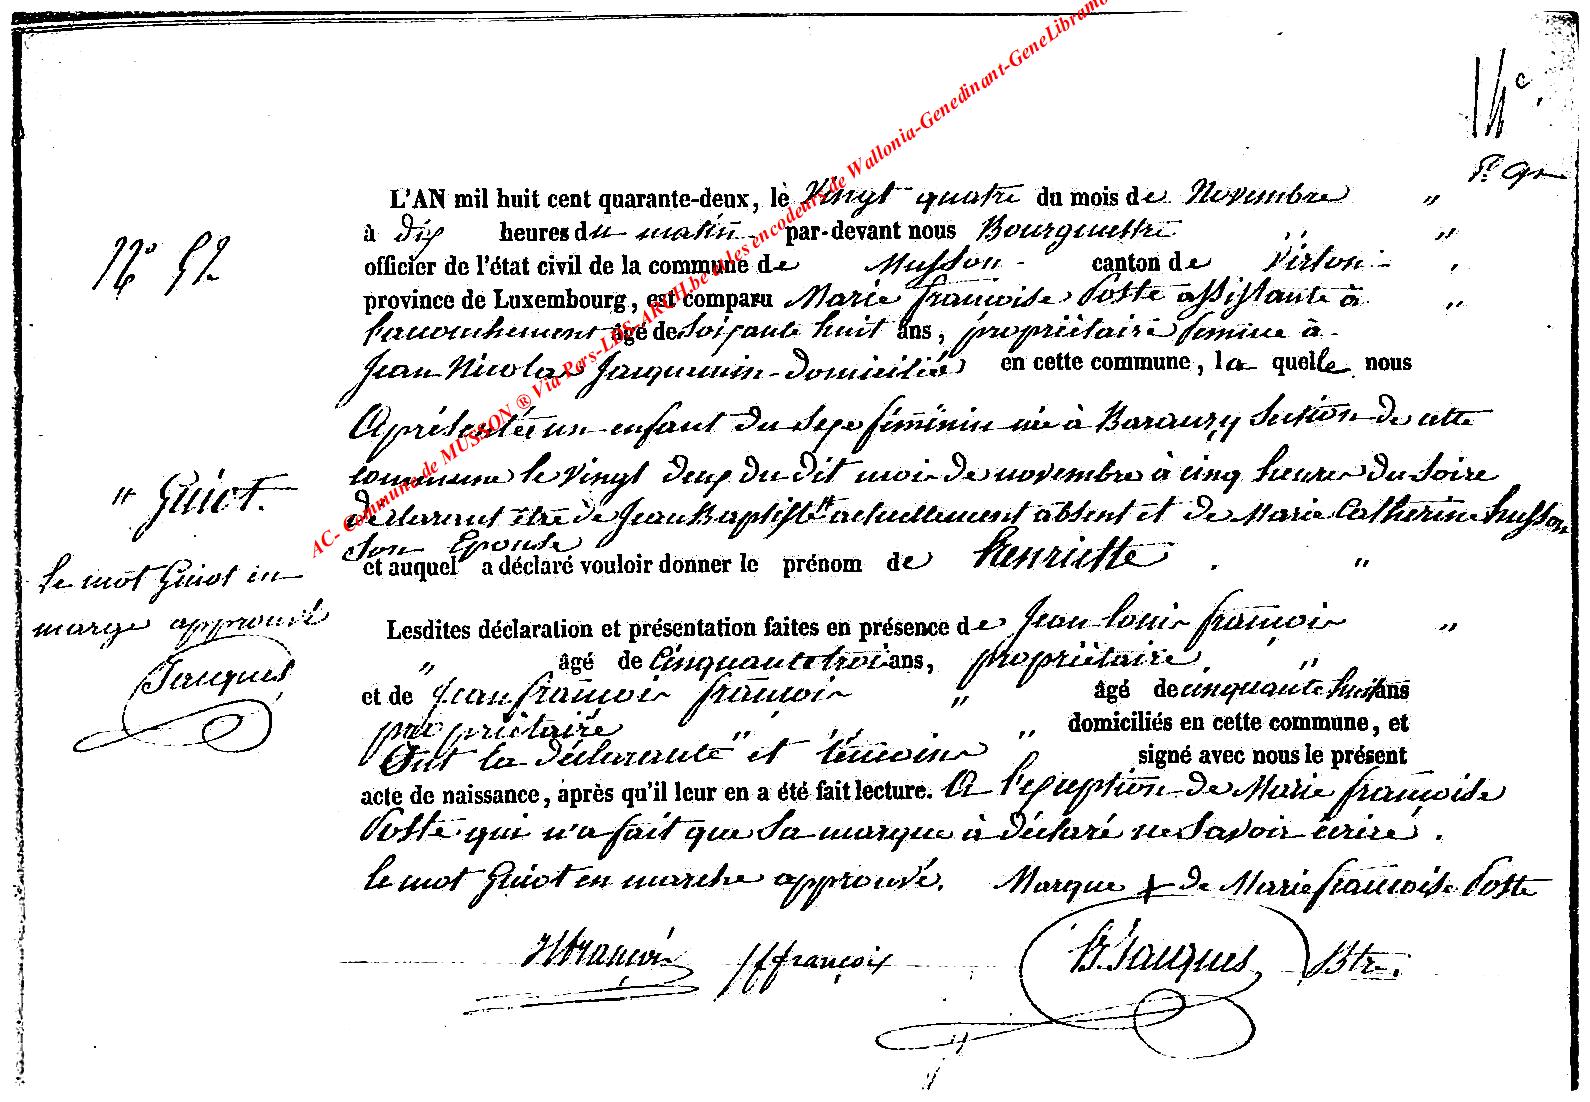 14e
N° 52
L'AN mil huit cent quarante-deux, le Vingt quatre du mois de Novembre "
à dix heures du matin par-devant nous Bourguestre " "
officier de l'état civil de la commune de Musson canton de Virton "
province de Luxembourg, est comparu Marie françoise Poste assistante à "
l'accouchement âgé de soixante huit ans, propriétaire femme à
Jean Nicolas Jacquemin domicilié en cette commune, la quelle nous
A présentée un enfant du sexe féminin née à Baranzy section de cette
commune le vingt deux du dit mois de novembre à cinq heures du soire
déclarant être de Jean Baptiste " actuellement absent et de Marie Catherine husson
son Epouse
et auquel a déclaré vouloir donner le prénom de henriette . "
" Guiot.
le mot Guiot en
marge approuvé
Jacques
Lesdites déclaration et présentation faites en présence de Jean louis françois "
" âgé de Cinquante trois ans, propriétaire. "
et de Jean françois françois " âgé de cinquante huit ans
propriétaire " " domiciliés en cette commune, et
Ont la déclarante et témoins signé avec nous le présent
acte de naissance, après qu'il leur en a été fait lecture. A l'exception de Marie françoise
Poste qui n'a fait que sa marque à déclaré ne savoir écriré.
le mot Guiot en marche approuvé. Marque + de Marie françoise Poste
françois JF françois Jacques Btre.
AC- Commune de MUSSON ® Via Pers-LDS-ARCH.be et les encodeurs de Wallonia-Genedinant-GeneLibramo